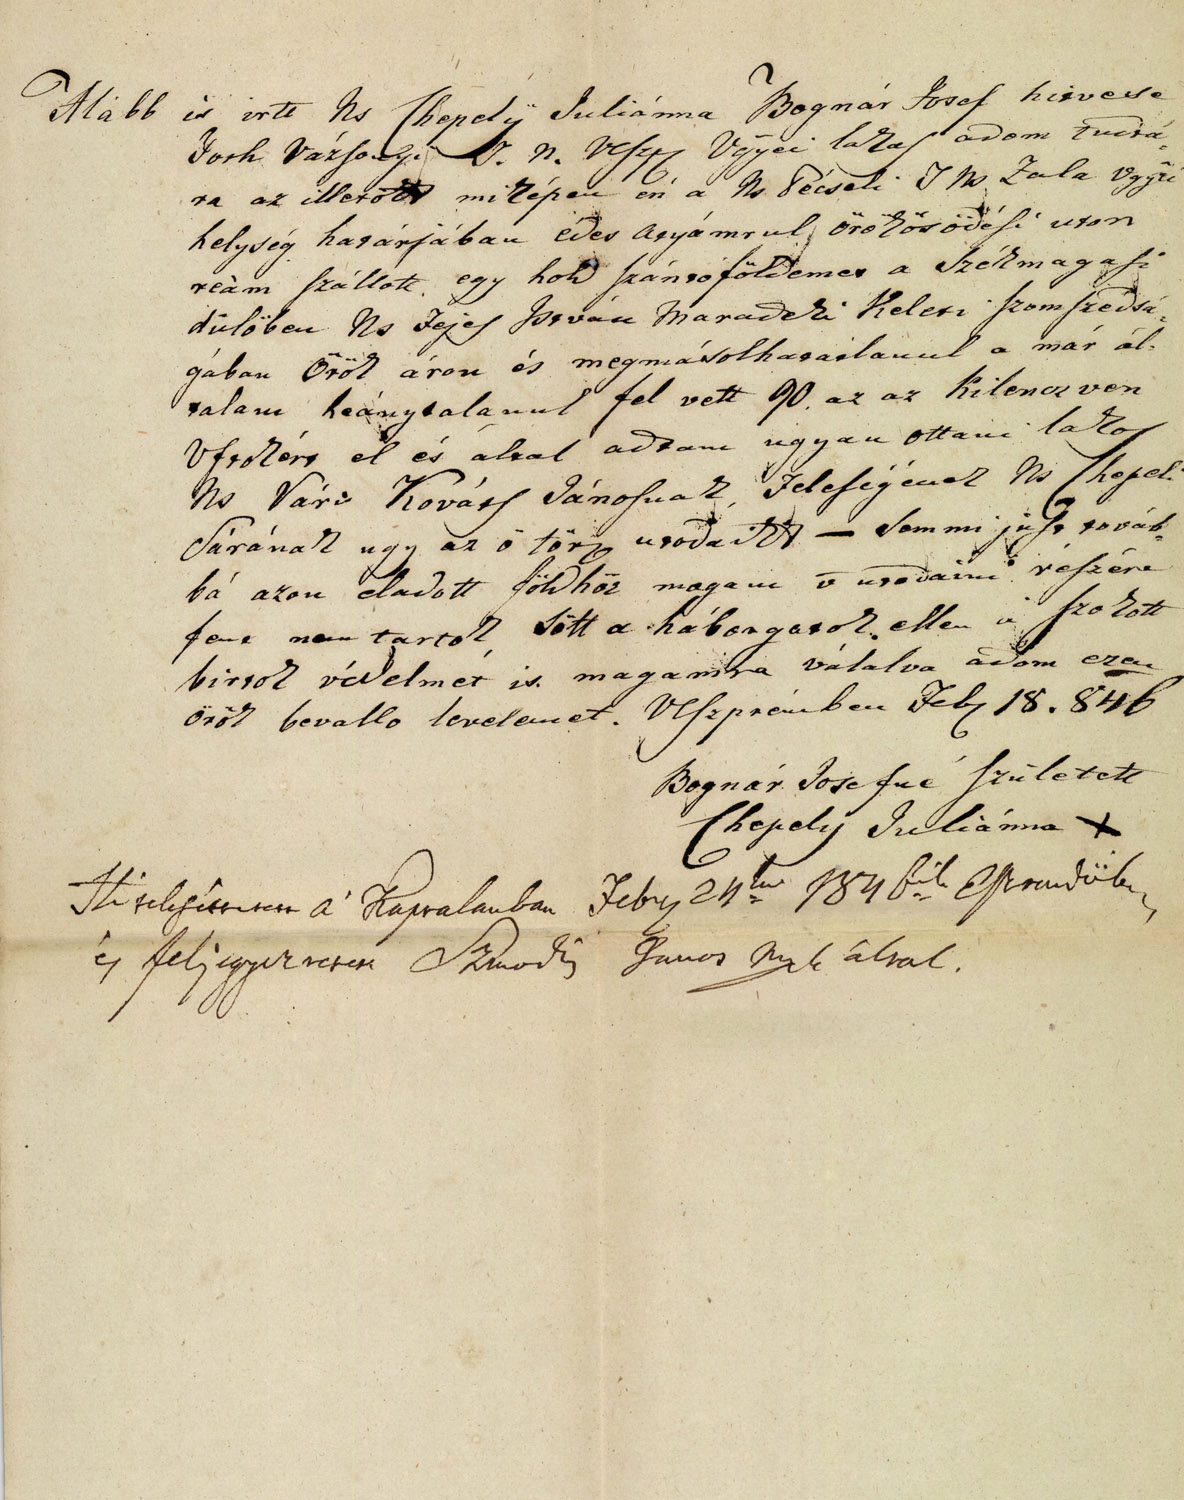 Alább is irtt Ns Chepely Juliánna Bognár Josef hitvesse
Tosh Vázsonyi T. N. Vesz Vgyei lakas adom tudtá-
ra az illetött miképen én a Ns Pécseli T Ns Zala Vgyei
helység határjában edes Atyámrul örökösödési uton
reàm szállott egy hold szántóföldemet a Székmagasi
dülöben Ns Fejes István Maradeki Keleti szomszedsá-
gában Örök áron és megmásolhatatlanul a már ál-
talam heánytalanul fel vett 90. az az Kilenczven
Vfrokért el és által adtam ugyan ottani lakos
Ns Vári Kováts Jánosnak, Feleségének Ns Chepeli
Sárának ugy az ö törz utodaikk — Semmi juſt továb-
bá azon eladott földhöz magam v utodaimi részére
fent nem tartok Sött a háborgatok ellen a szokott
birtok védelmét is magamra válalva adom ezen
örök bevallo levelemet. Veszprémben Feb 18. 846
Bognár Josefné született
Chepely Juliánna X
Hitelesittetett a' Kaptalanban Febr 24 184
és feljegyeztetett János által.